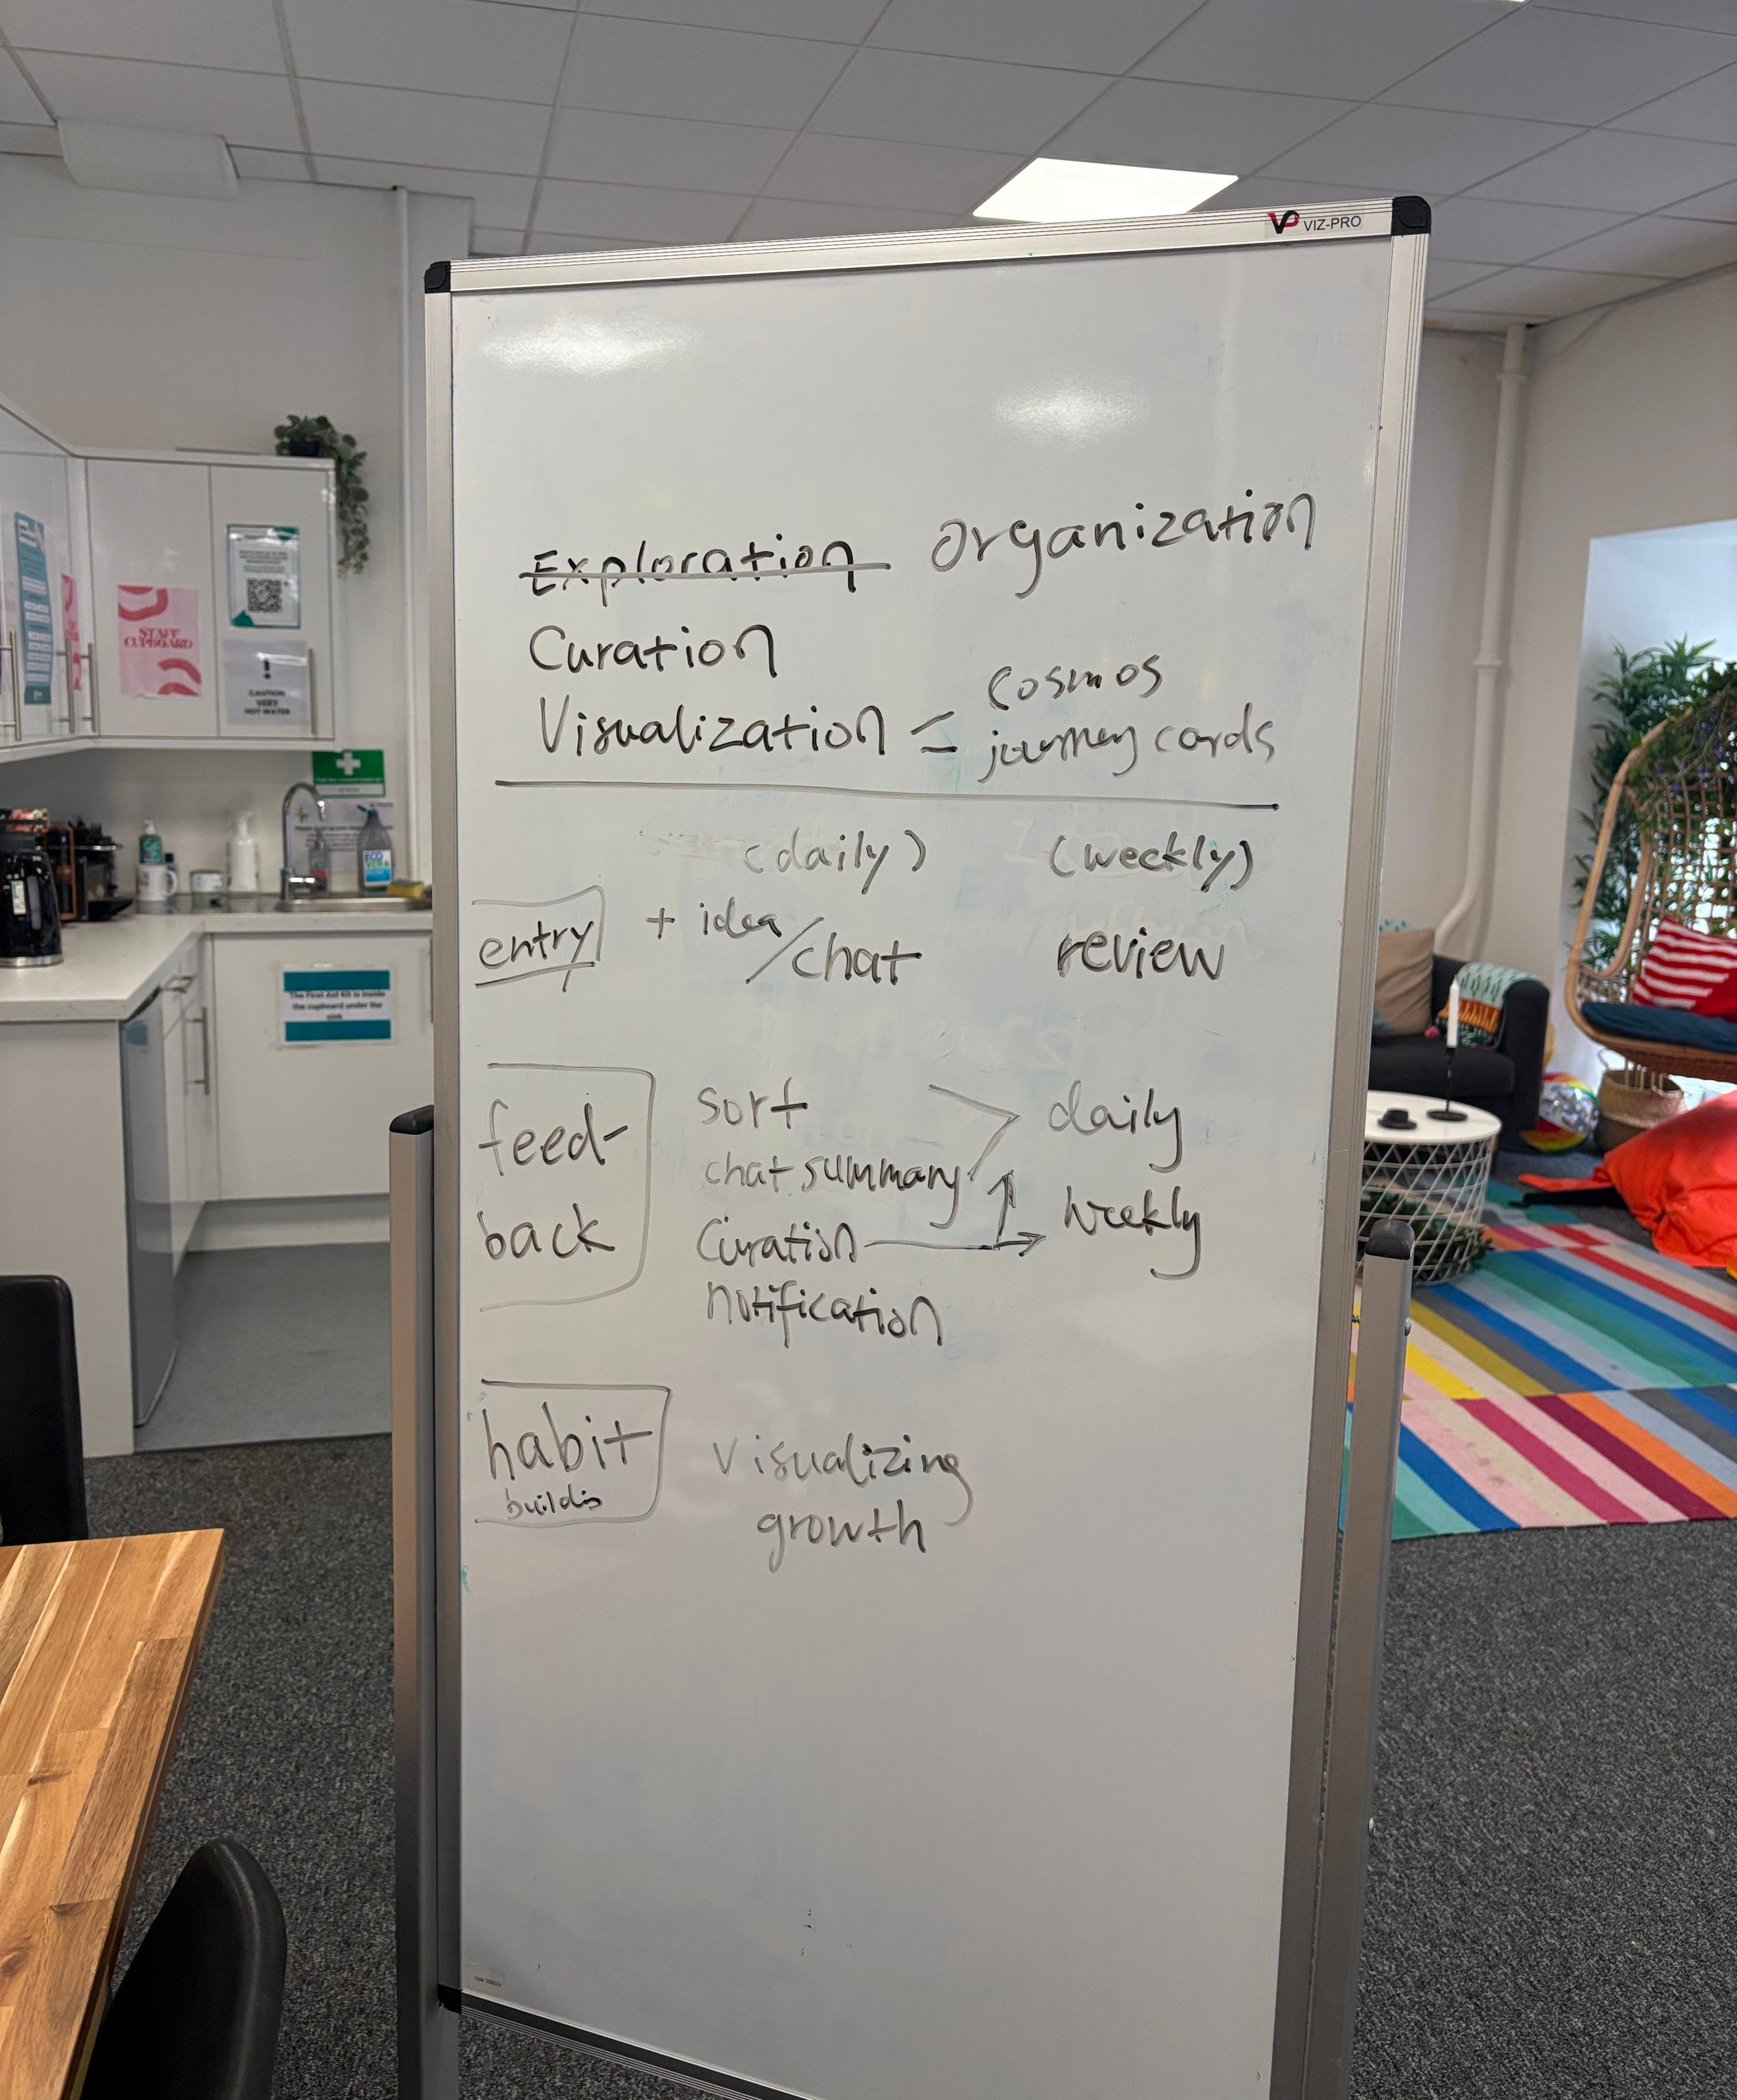 VIZ-PRO
Exploration Organization
Curation
Visualization = cosmos
journey cards
(daily) (weekly)
entry + idea / chat review
feed- sort daily
chat summary
back curation → weekly
notification
habit visualizing
growth
STAFF
CUPBOARD
!
CAUTION
VERY
HOT WATER
The First Aid Kit is inside
the cupboard under the
sink
ECO